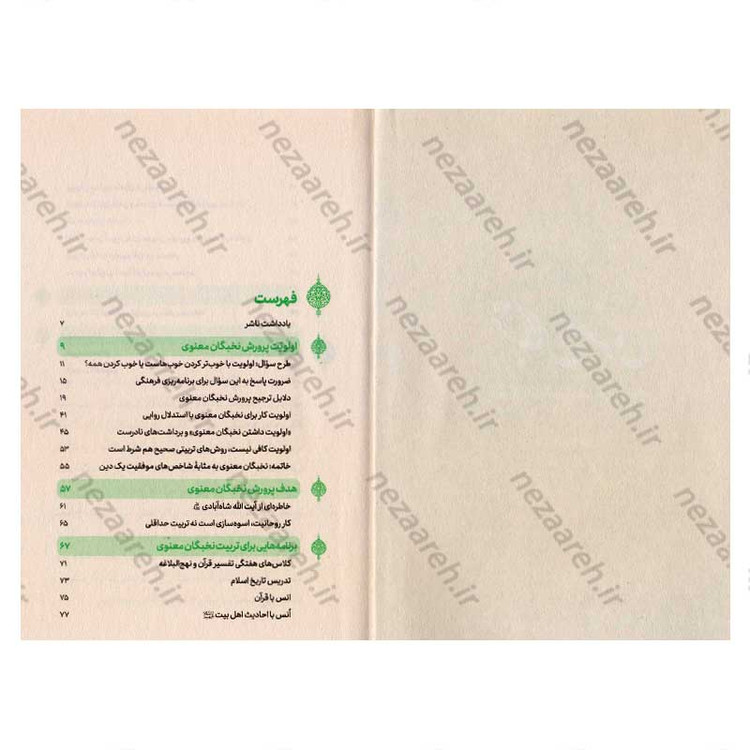 فهرست
یادداشت ناشر ۷
اولویت پرورش نخبگان معنوی ۹
طرح سؤال؛ اولویت با خوب‌تر کردن خوب‌هاست یا خوب کردن همه؟ ۱۱
ضرورت پاسخ به این سؤال برای برنامه‌ریزی فرهنگی ۱۵
دلایل ترجیح پرورش نخبگان معنوی ۱۹
اولویت کار برای نخبگان معنوی با استدلال روایی ۴۱
«اولویت داشتن نخبگان معنوی» و برداشت‌های نادرست ۴۵
اولویت کافی نیست، روش‌های تربیتی صحیح هم شرط است ۵۳
خاتمه: نخبگان معنوی به مثابهٔ شاخص‌های موفقیت یک دین ۵۵
هدف پرورش نخبگان معنوی ۵۷
خاطره‌ای از آیت الله شاه‌آبادی ۶۱
کار روحانیت، اسوه‌سازی است نه تربیت حداقلی ۶۵
برنامه‌هایی برای تربیت نخبگان معنوی ۶۷
کلاس‌های هفتگی تفسیر قرآن و نهج‌البلاغه ۷۱
تدریس تاریخ اسلام ۷۳
انس با قرآن ۷۵
اُنس با احادیث اهل بیت ۷۷
nezaareh.ir
nezaareh.ir
nezaareh.ir
nezaareh.ir
nezaareh.ir
nezaareh.ir
nezaareh.ir
nezaareh.ir
nezaareh.ir